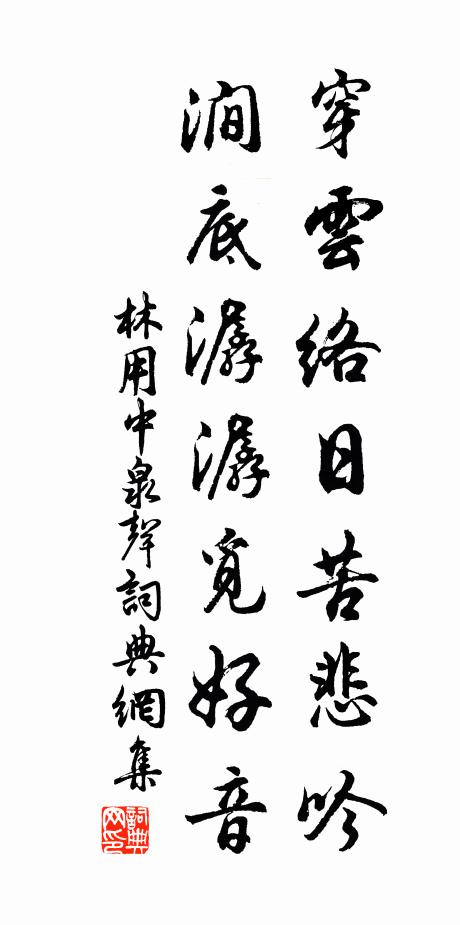 穿雲絡日苦悲吟
澗底潺潺覓好音
林用中泉聲詞典網集
詞典网印